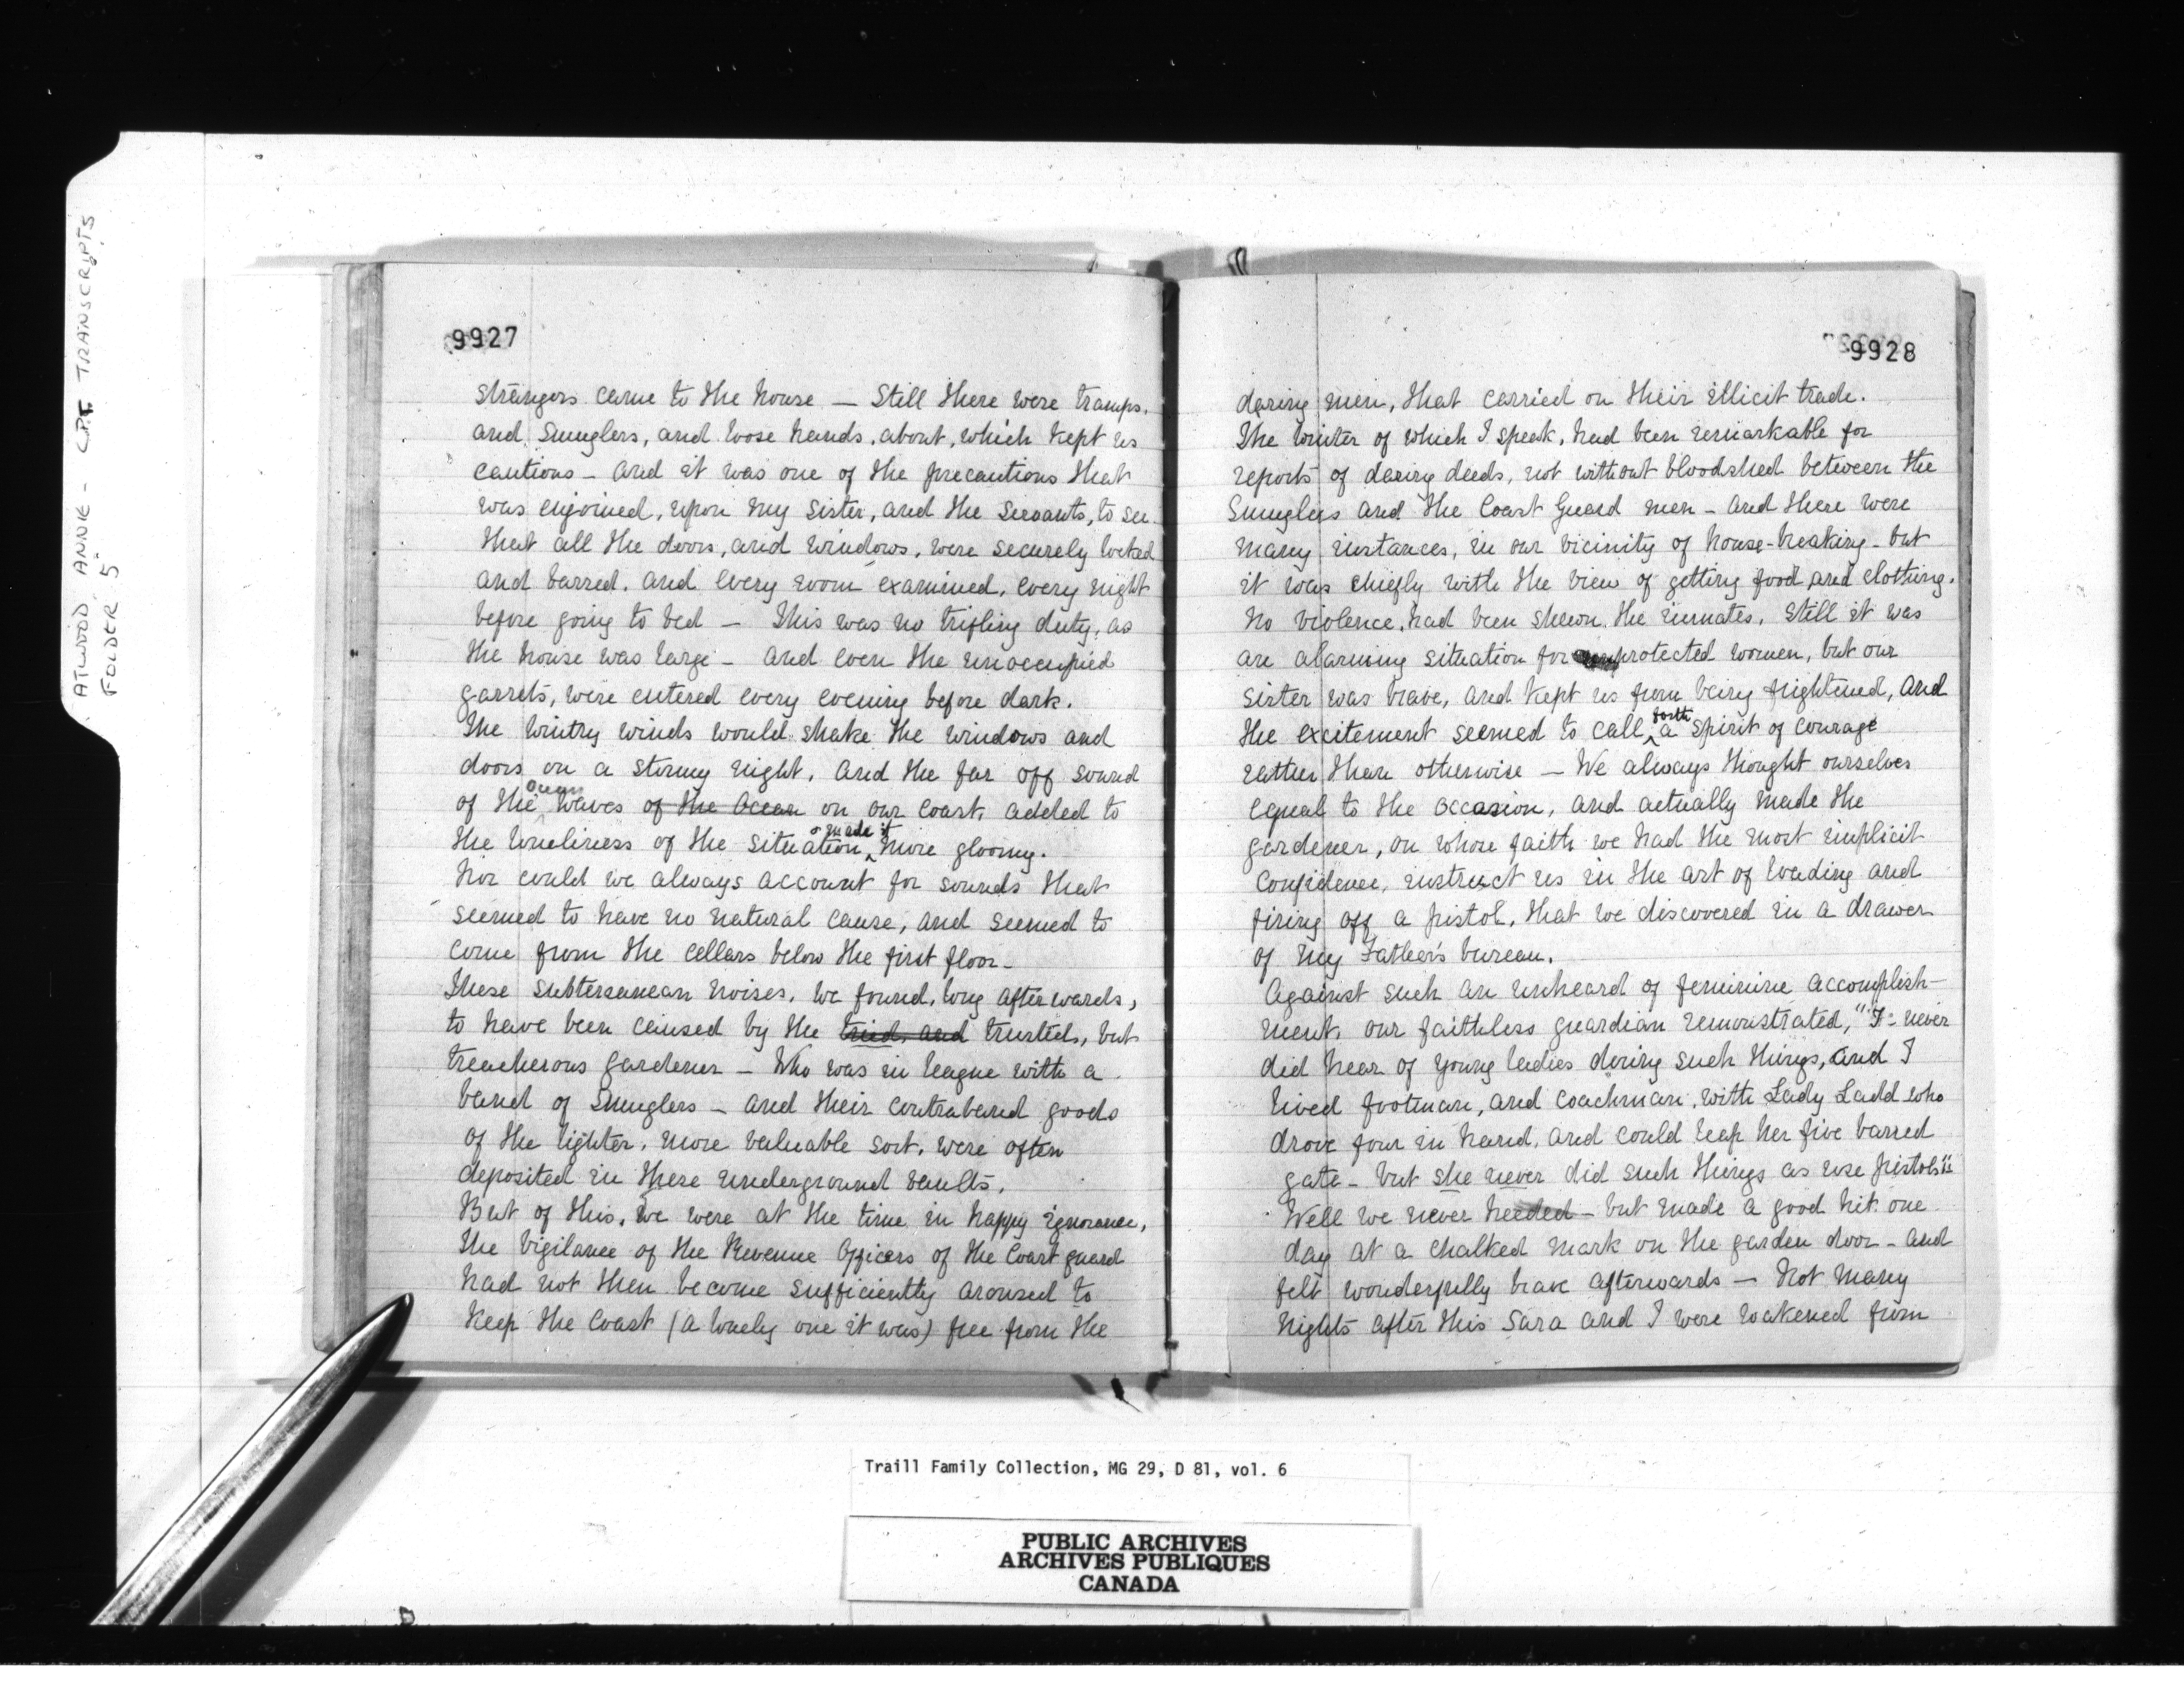 ATWOOD, ANNIE - C.P.T. TRANSCRIPTS
FOLDER 5
9927
strangers came to the house — Still there were tramps,
and Smuglers, and loose hands, about, which kept us
cautious - and it was one of the precautions that
was enjoined, upon my sister, and the servants, to see
that all the doors, and windows, were securely locked
and barred. and every room examined, every night
before going to bed — This was no trifling duty, as
the house was large - and even the unoccupied
garrets, were entered every evening before dark.
The wintry winds would shake the windows and
doors on a stormy night, and the far off sound
of the Ocean waves of the Ocean on our coast, added to
the loneliness of the situation, & made it more gloomy.
Nor could we always account for sounds that
seemed to have no natural cause, and seemed to
come from the cellars below the first floor -
These subterranean noises, we found, long afterwards,
to have been caused by the tried and trusted, but
treacherous gardener - Who was in league with a
band of Smuglers - and their contraband goods
of the lighter, more valuable sort, were often
deposited in these underground vaults.
But of this, we were at the time in happy ignorance,
the vigilance of the Revenue Officers of the Coast guard
had not then become sufficiently aroused to
keep the coast (a lonely one it was) free from the
9928
daring men, that carried on their illicit trade.
The winter of which I speak, had been remarkable for
reports of daring deeds, not without bloodshed between the
Smuglers and the Coast Guard men - and there were
many instances, in our vicinity of house-breaking - but
it was chiefly with the view of getting food and clothing.
No violence, had been shewn, the inmates, still it was
an alarming situation for unprotected women, but our
sister was brave, and kept us from being frightened, and
the excitement seemed to call forth a spirit of courage
rather than otherwise — We always thought ourselves
equal to the occasion, and actually made the
gardener, on whose faith we had the most implicit
confidence, instruct us in the art of loading and
firing off a pistol, that we discovered in a drawer
of my Father's bureau.
Against such an unheard of feminine accomplish-
ment, our faithless guardian remonstrated, "I never
did hear of young ladies doing such things, and I
lived footman, and coachman, with Lady Ladd who
drove four in hand, and could leap her five barred
gate - but she never did such things as use pistols"
Well we never heeded - but made a good hit one
day at a chalked mark on the garden door - and
felt wonderfully brave afterwards — Not many
nights after this Sara and I were wakened from
Traill Family Collection, MG 29, D 81, vol. 6
PUBLIC ARCHIVES
ARCHIVES PUBLIQUES
CANADA